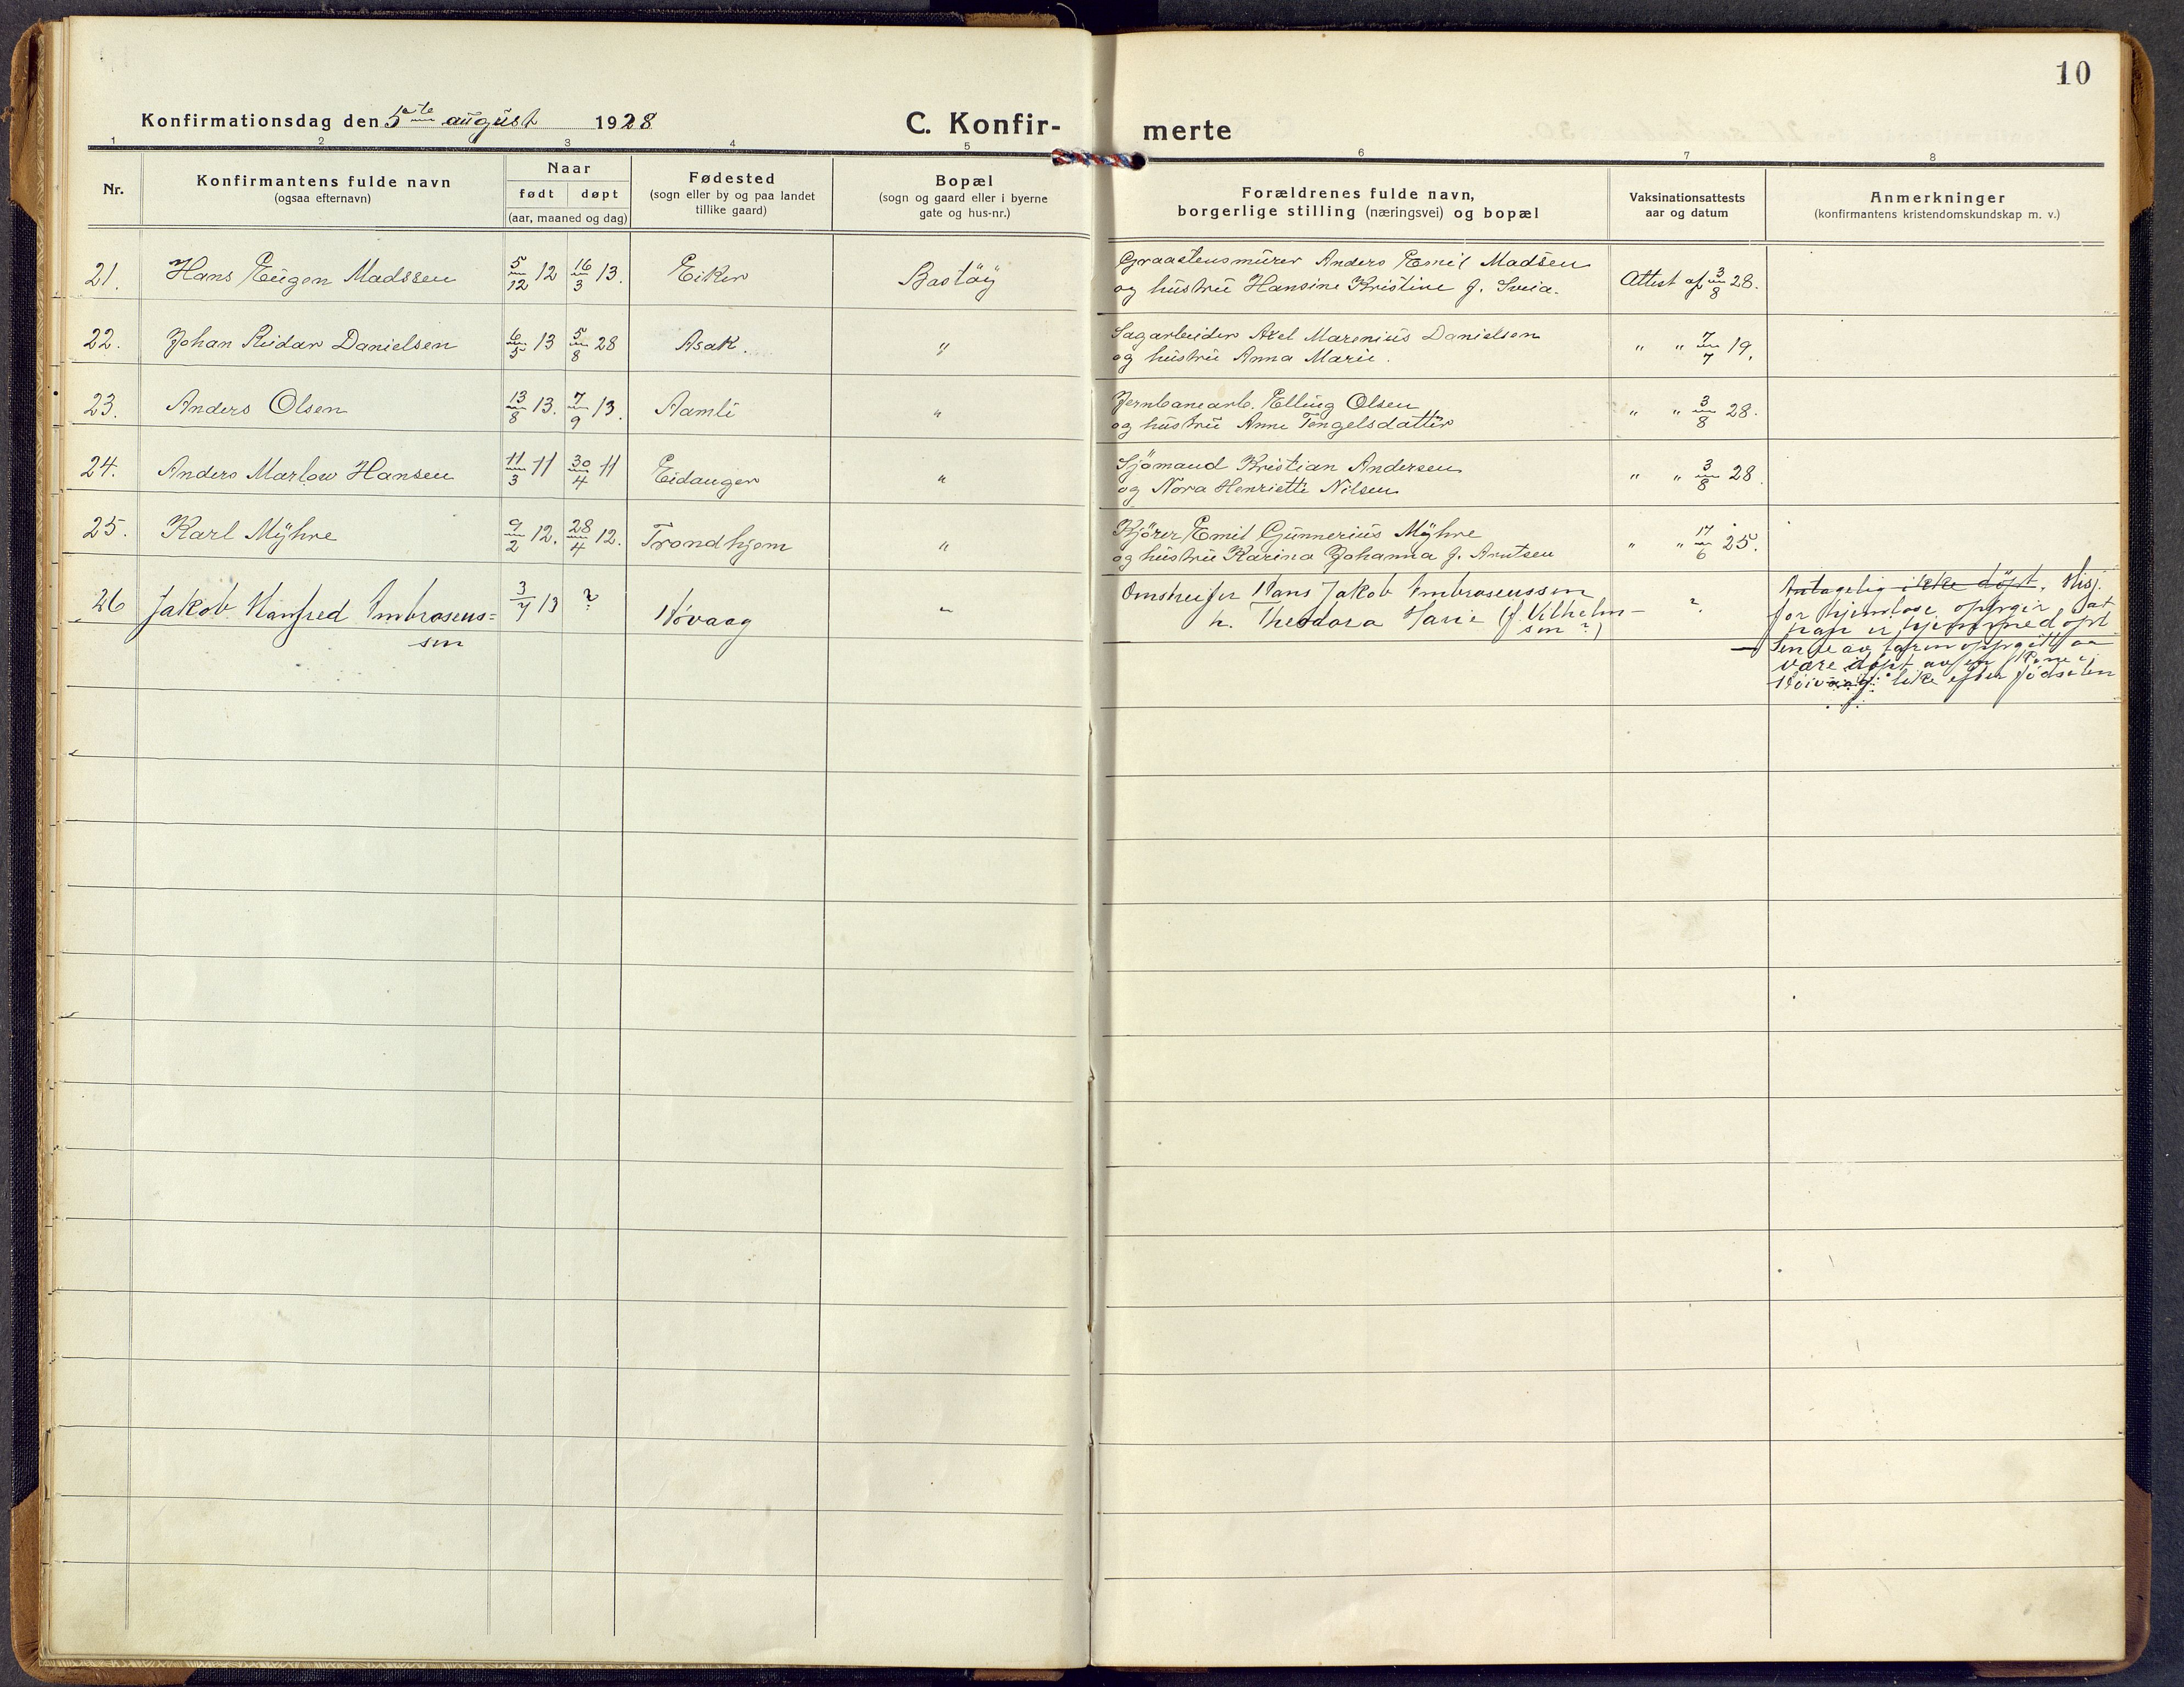 10
Konfirmationsdag den 5te august 1928 C. Konfir- merte
1 2 3 4 5 6 7 8
Nr. Konfirmantens fulde navn (ogsaa efternavn) Naar født døpt (aar, maaned og dag) Fødested (sogn eller by og paa landet tillike gaard) Bopæl (sogn og gaard eller i byerne gate og hus-nr.) Forældrenes fulde navn, borgerlige stilling (næringsvei) og bopæl Vaksinationsattests aar og datum Anmerkninger (konfirmantens kristendomskundskap m. v.)
21. Hans Eugen Madssen 5/12 12 16/3 13. Eiker Bastøy Graastensmurer Anders Emil Madsen
og hustru Hansine Kristine f. Svea. Attest af 3/8 28.
22. Johan Reidar Danielsen 6/5 13 5/8 28 Asak. " Sagarbeider Axel Marenius Danielsen
og hustru Anna Marie. " " 7/7 19.
23. Anders Olsen 13/8 13. 7/9 13. Aamli " Jernbanearb. Elling Olsen
og hustru Anne Tengelsdatter " " 3/8 28.
24. Anders Marlow Hansen 11/3 11 30/4 11 Eidanger " Sjømand Kristian Andersen
og Nora Henriette Nilsen " " 3/8 28.
25. Karl Myhre 9/2 12. 28/4 12. Trondhjem " Kjører Emil Gunnerius Myhre
og hustru Karina Johanna f. Arntsen " " 17/6 25.
26 Jakob Manfred Ambrosens=
sen 3/7 13 ? Høvaag " Omstreifer Hans Jakob Ambrosenssen
h. Theodora Marie (f. Vilhelm-
sen ?) ? Antagelig ikke døpt. Misj.
for hjemløse opgir, at
han er hjemmedøpt
være døpt av en
Høivaag like efter fødselen